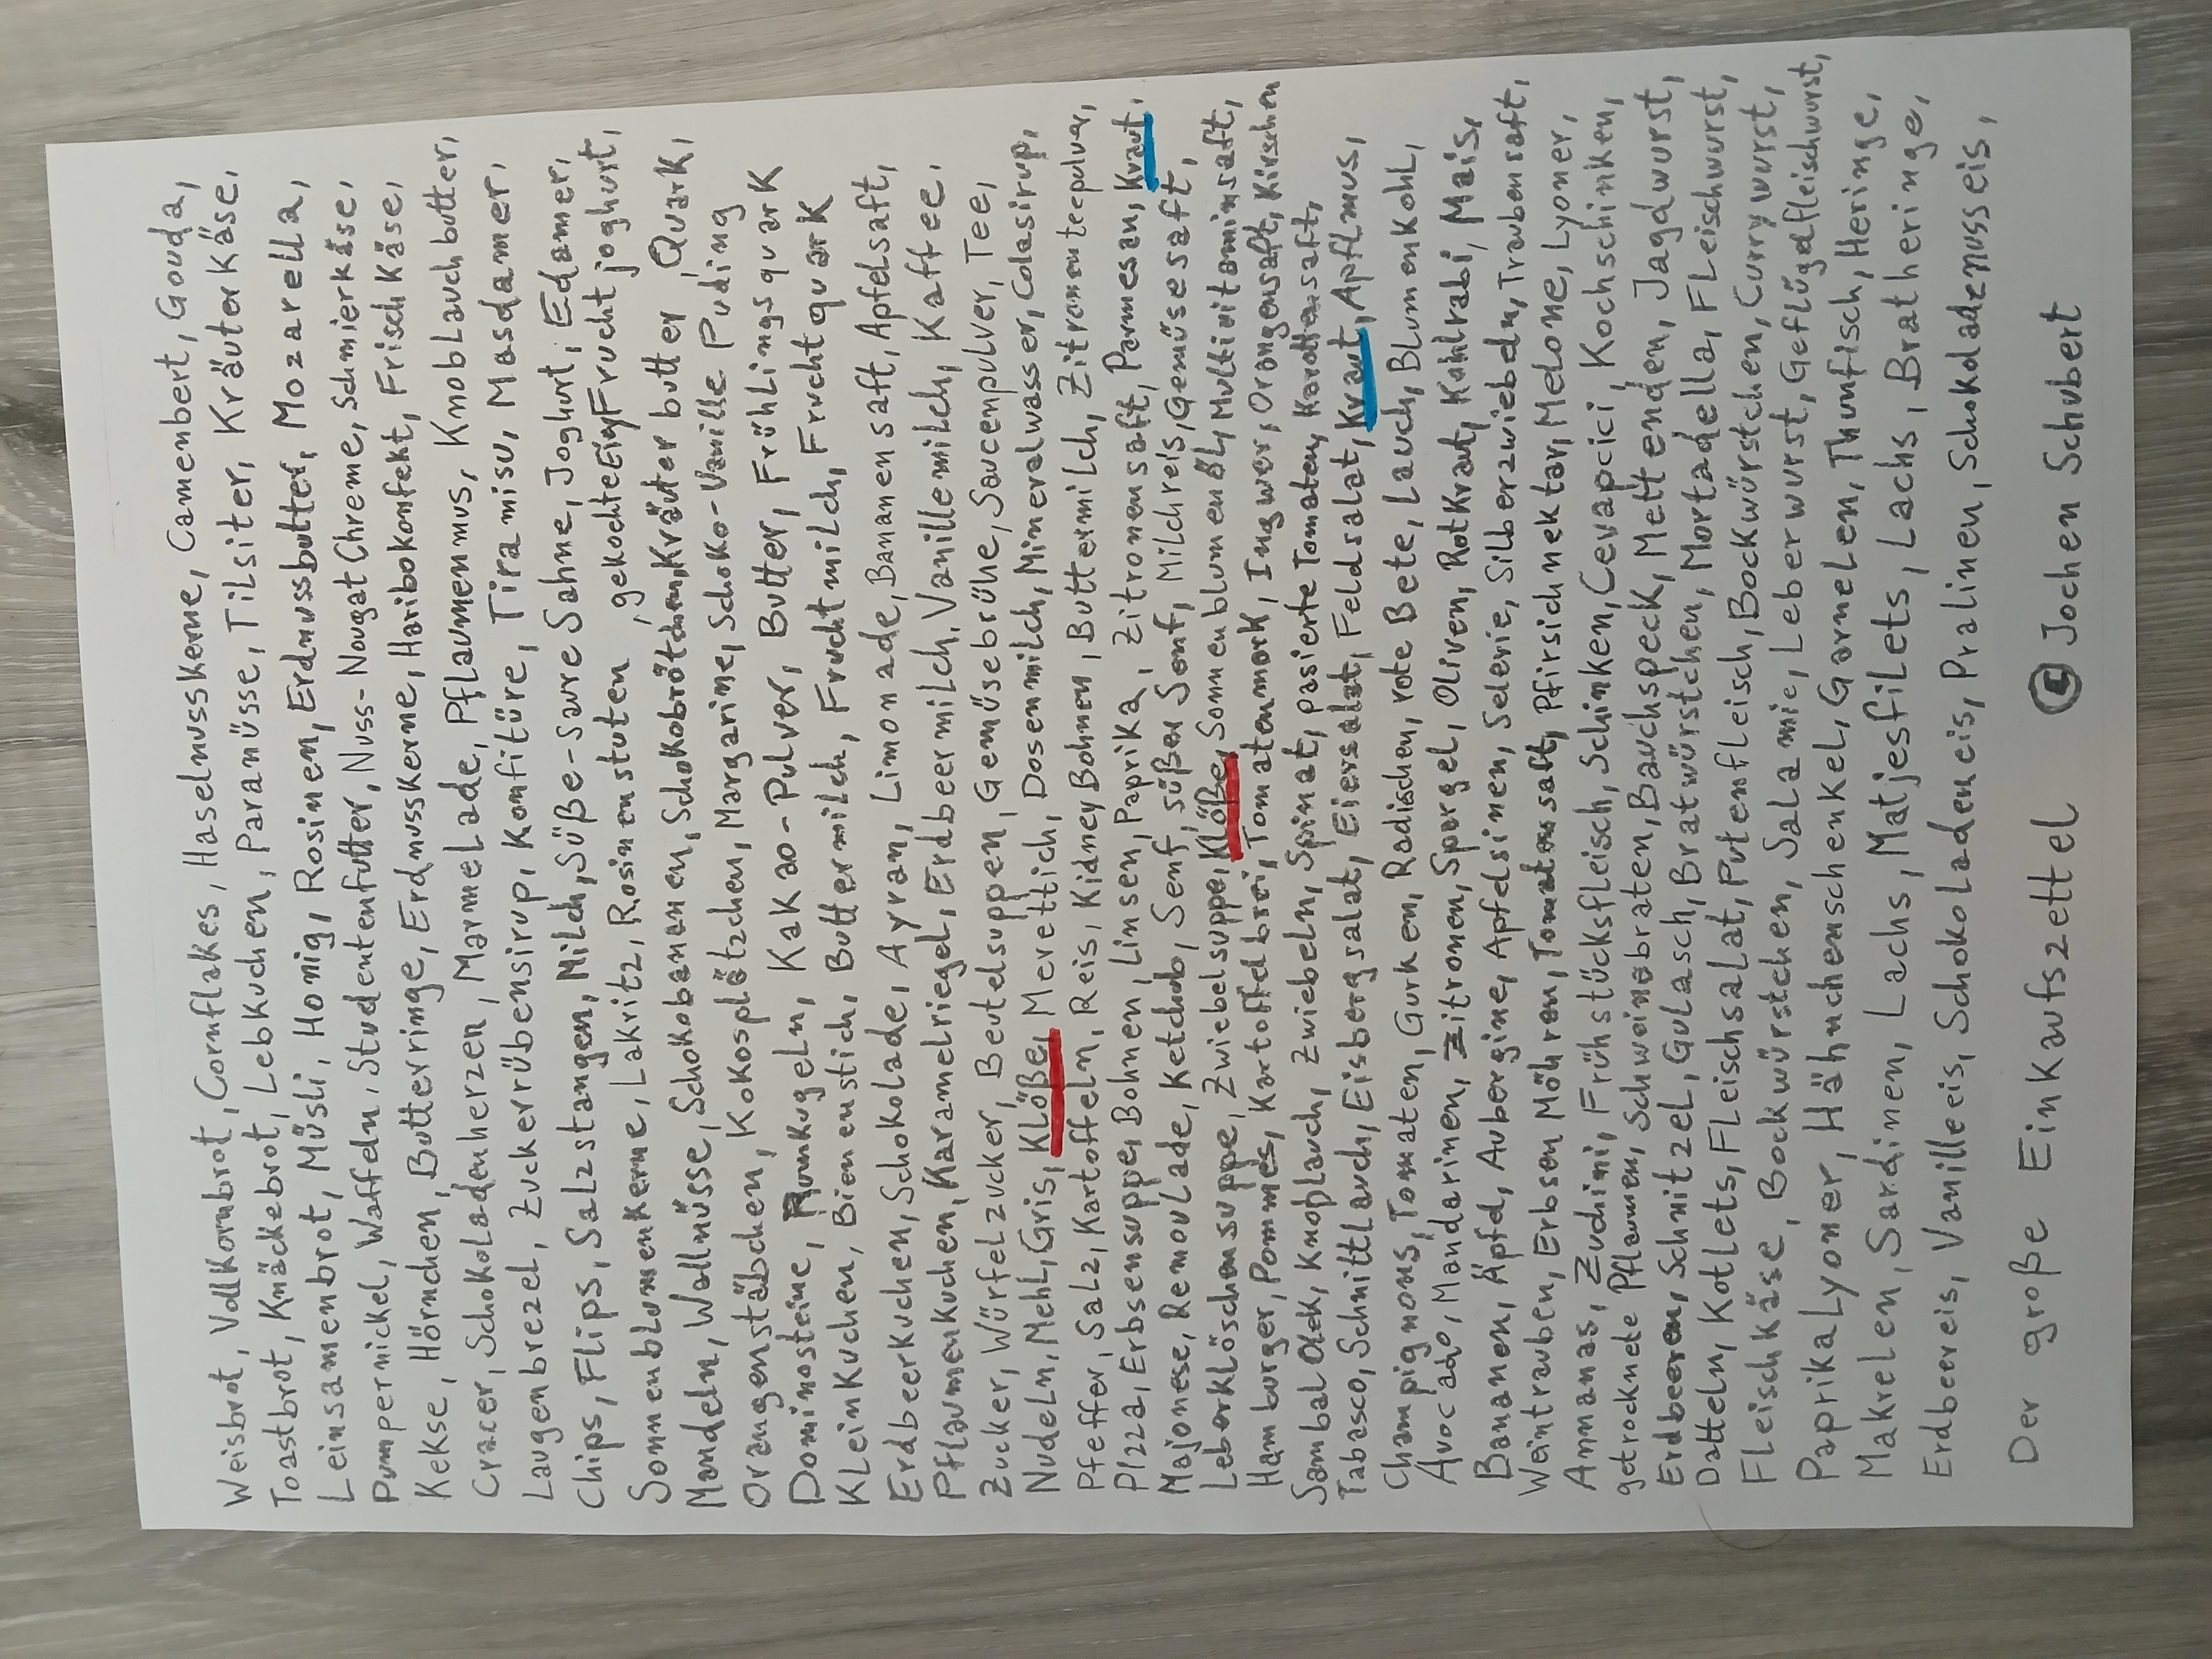 Weisbrot, Vollkornbrot, Cornflakes, Haselnusskerne, Camenbert, Gouda,
Toastbrot, Knäckebrot, Lebkuchen, Paranüsse, Tilsiter, Kräuterkäse,
Leinsamenbrot, Müsli, Honig, Rosinen, Erdnussbutter, Mozarella,
Pumpernickel, Waffeln, Studentenfutter, Nuss-Nougat Chreme, Schmierkäse,
Kekse, Hörnchen, Butterringe, Erdnusskerne, Haribokonfekt, Frischkäse,
Cracer, Schokoladenherzen, Marmelade, Pflaumenmus, Knoblauchbutter,
Laugenbrezel, Zuckerrübensirup, Konfitüre, Tiramisu, Masdamer,
Chips, Flips, Salzstangen, Milch, Süße-saure Sahne, Joghurt, Edamer,
Sonnenblumenkerne, Lakritz, Rosinenstuten, gekochte Eier, Fruchtjoghurt,
Mandeln, Wallnüsse, Schokobananen, Schokobrötchen, Kräuterbutter, Quark,
Orangenstäbchen, Kokosplätzchen, Margarine, Schoko-Vanille Puding
Dominosteine, Rumkugeln, Kakao-Pulver, Butter, Frühlingsquark
Kleinkuchen, Bienenstich, Buttermilch, Fruchtmilch, Fruchtquark
Erdbeerkuchen, Schokolade, Ayran, Limonade, Bananensaft, Apfelsaft,
Pflaumenkuchen, Karamelriegel, Erdbeermilch, Vanillemilch, Kaffee,
Zucker, Würfelzucker, Beutelsuppen, Gemüsebrühe, Saucenpulver, Tee,
Nudeln, Mehl, Gris, Klöße, Merettich, Dosenmilch, Mineralwasser, Colasirup,
Pfeffer, Salz, Kartoffeln, Reis, Kidney Bohnen, Buttermilch, Zitronenteepulver,
Pizza, Erbsensuppe, Bohnen, Linsen, Paprika, Zitronensaft, Parmesan, Kraut,
Majonese, Remoulade, Ketchub, Senf, süßer Senf, Milchreis, Gemüsesaft,
Leberklöschensuppe, Zwiebelsuppe, Klöße, Sonnenblumenöl, Multivitaminsaft,
Hamburger, Pommes, Kartoffelbrei, Tomatenmark, Ingwer, Orangensaft, Kirschen
Sambal Olek, Knoplauch, Zwiebeln, Spinat, passierte Tomaten, Karottensaft,
Tabasco, Schnittlauch, Eisbergsalat, Eiersalat, Feldsalat, Kraut, Apflmus,
Champignons, Tomaten, Gurken, Radischen, rote Bete, Lauch, Blumenkohl,
Avocado, Mandarinen, Zitronen, Spargel, Oliven, Rotkraut, Kohlrabi, Mais,
Bananen, Äpfel, Aubergine, Apfelsinen, Selerie, Silberzwiebeln, Traubensaft,
Weintrauben, Erbsen Möhren, Tomatensaft, Pfirsichnektar, Melone, Lyoner,
Annanas, Zuchini, Frühstücksfleisch, Schinken, Cevapcici, Kochschinken,
getrocknete Pflaumen, Schweinebraten, Bauchspeck, Mettenden, Jagdwurst,
Erdbeeren, Schnitzel, Gulasch, Bratwürstchen, Mortadella, Fleischwurst,
Datteln, Kotlets, Fleischsalat, Putenfleisch, Bockwürstchen, Currywurst,
Fleischkäse, Bockwürstchen, Salamie, Leberwurst, Geflügelfleischwurst,
Paprikalyoner, Hähnchenschenkel, Garnelen, Thunfisch, Heringe,
Makrelen, Sardinen, Lachs, Matjesfilets, Lachs, Bratheringe,
Erdbeereis, Vanilleeis, Schokoladeneis, Pralinen, Schokoladenusseis,
Der große Einkaufszettel © Jochen Schubert